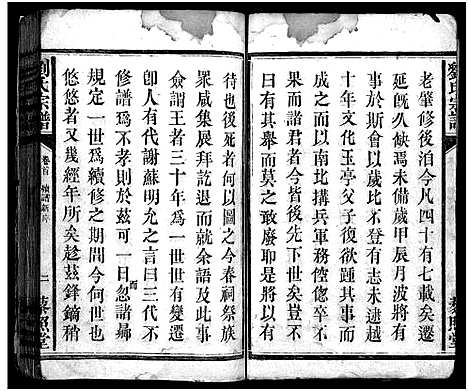 劉氏宗譜
老肇修後泊今凡四十有七載矣遷
延旣久缺焉未備歲甲辰月波補有
事於斯會以歲比不登有志未遂越
十年文犧玉亭父子復欲踵
而舉之卒卒以南北搆兵軍務倥傯不果
而諸君者今皆先後下世矣嗚呼
曰有其舉之莫敢廢耶是將以有
蔡照堂
待也後死者何以圖之今春祠祭族
眾咸集拜訖退而就余語及此事余
僉謂王者三十年為一世世有變遷
卽人有代謝蘇明允嘗曰三代不
修譜爲不孝則於茲可一日忽諸歸而
規定一世爲續修之期間今何世也
悠悠者又幾經年所矣趁茲鋒鏑稍
劉氏宗譜
卷首
續譜新序
二
蔡照堂